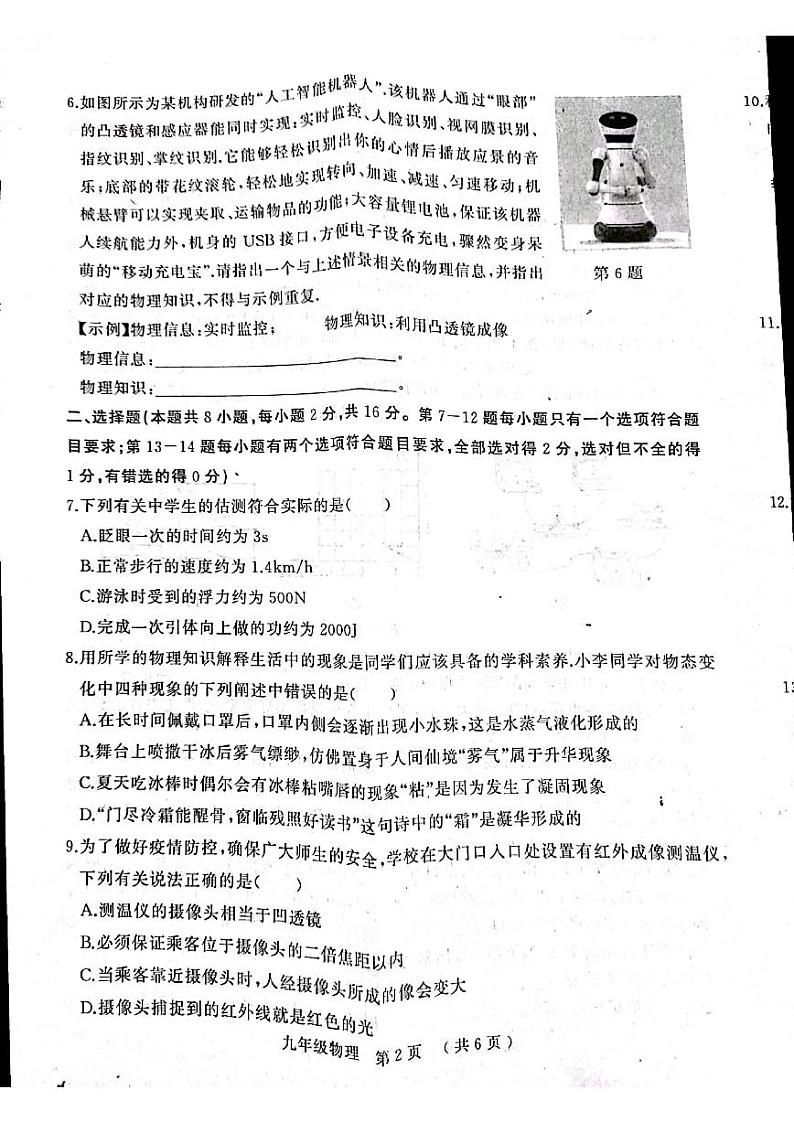 6.如图所示为某机构研发的“人工智能机器人”.该机器人通过“眼部”
的凸透镜和感应器能同时实现:实时监控、人脸识别、视网膜识别、
指纹识别、掌纹识别.它能够轻松识别出你的心情后播放应景的音
乐;底部的带花纹滚轮,轻松地实现转向、加速、减速、匀速移动;机
械悬臂可以实现夹取、运输物品的功能;大容量锂电池,保证该机器
人续航能力外,机身的 USB 接口,方便电子设备充电,骤然变身呆
萌的“移动充电宝”.请指出一个与上述情景相关的物理信息,并指出
对应的物理知识,不得与示例重复.
第 6 题
【示例】物理信息:实时监控; 物理知识:利用凸透镜成像
物理信息:。
物理知识:。
二、选择题(本题共 8 小题,每小题 2 分,共 16 分。第 7-12 题每小题只有一个选项符合题
目要求;第 13-14 题每小题有两个选项符合题目要求,全部选对得 2 分,选对但不全的得
1 分,有错选的得 0 分)
7.下列有关中学生的估测符合实际的是( )
A.眨眼一次的时间约为 3s
B.正常步行的速度约为 1.4km/h
C.游泳时受到的浮力约为 500N
D.完成一次引体向上做的功约为 2000J
8.用所学的物理知识解释生活中的现象是同学们应该具备的学科素养.小李同学对物态变
化中四种现象的下列阐述中错误的是( )
A.在长时间佩戴口罩后,口罩内侧会逐渐出现小水珠,这是水蒸气液化形成的
B.舞台上喷撒干冰后雾气缥缈,仿佛置身于人间仙境“雾气”属于升华现象
C.夏天吃冰棒时偶尔会有冰棒粘嘴唇的现象“粘”是因为发生了凝固现象
D.“门尽冷霜能醒骨,窗临残照好读书”这句诗中的“霜”是凝华形成的
9.为了做好疫情防控,确保广大师生的安全,学校在大门口人口处设置有红外成像测温仪,
下列有关说法正确的是( )
A.测温仪的摄像头相当于凹透镜
B.必须保证乘客位于摄像头的二倍焦距以内
C.当乘客靠近摄像头时,人经摄像头所成的像会变大
D.摄像头捕捉到的红外线就是红色的光
九年级物理 第 2 页 (共 6 页)
10.
11.
12.
13